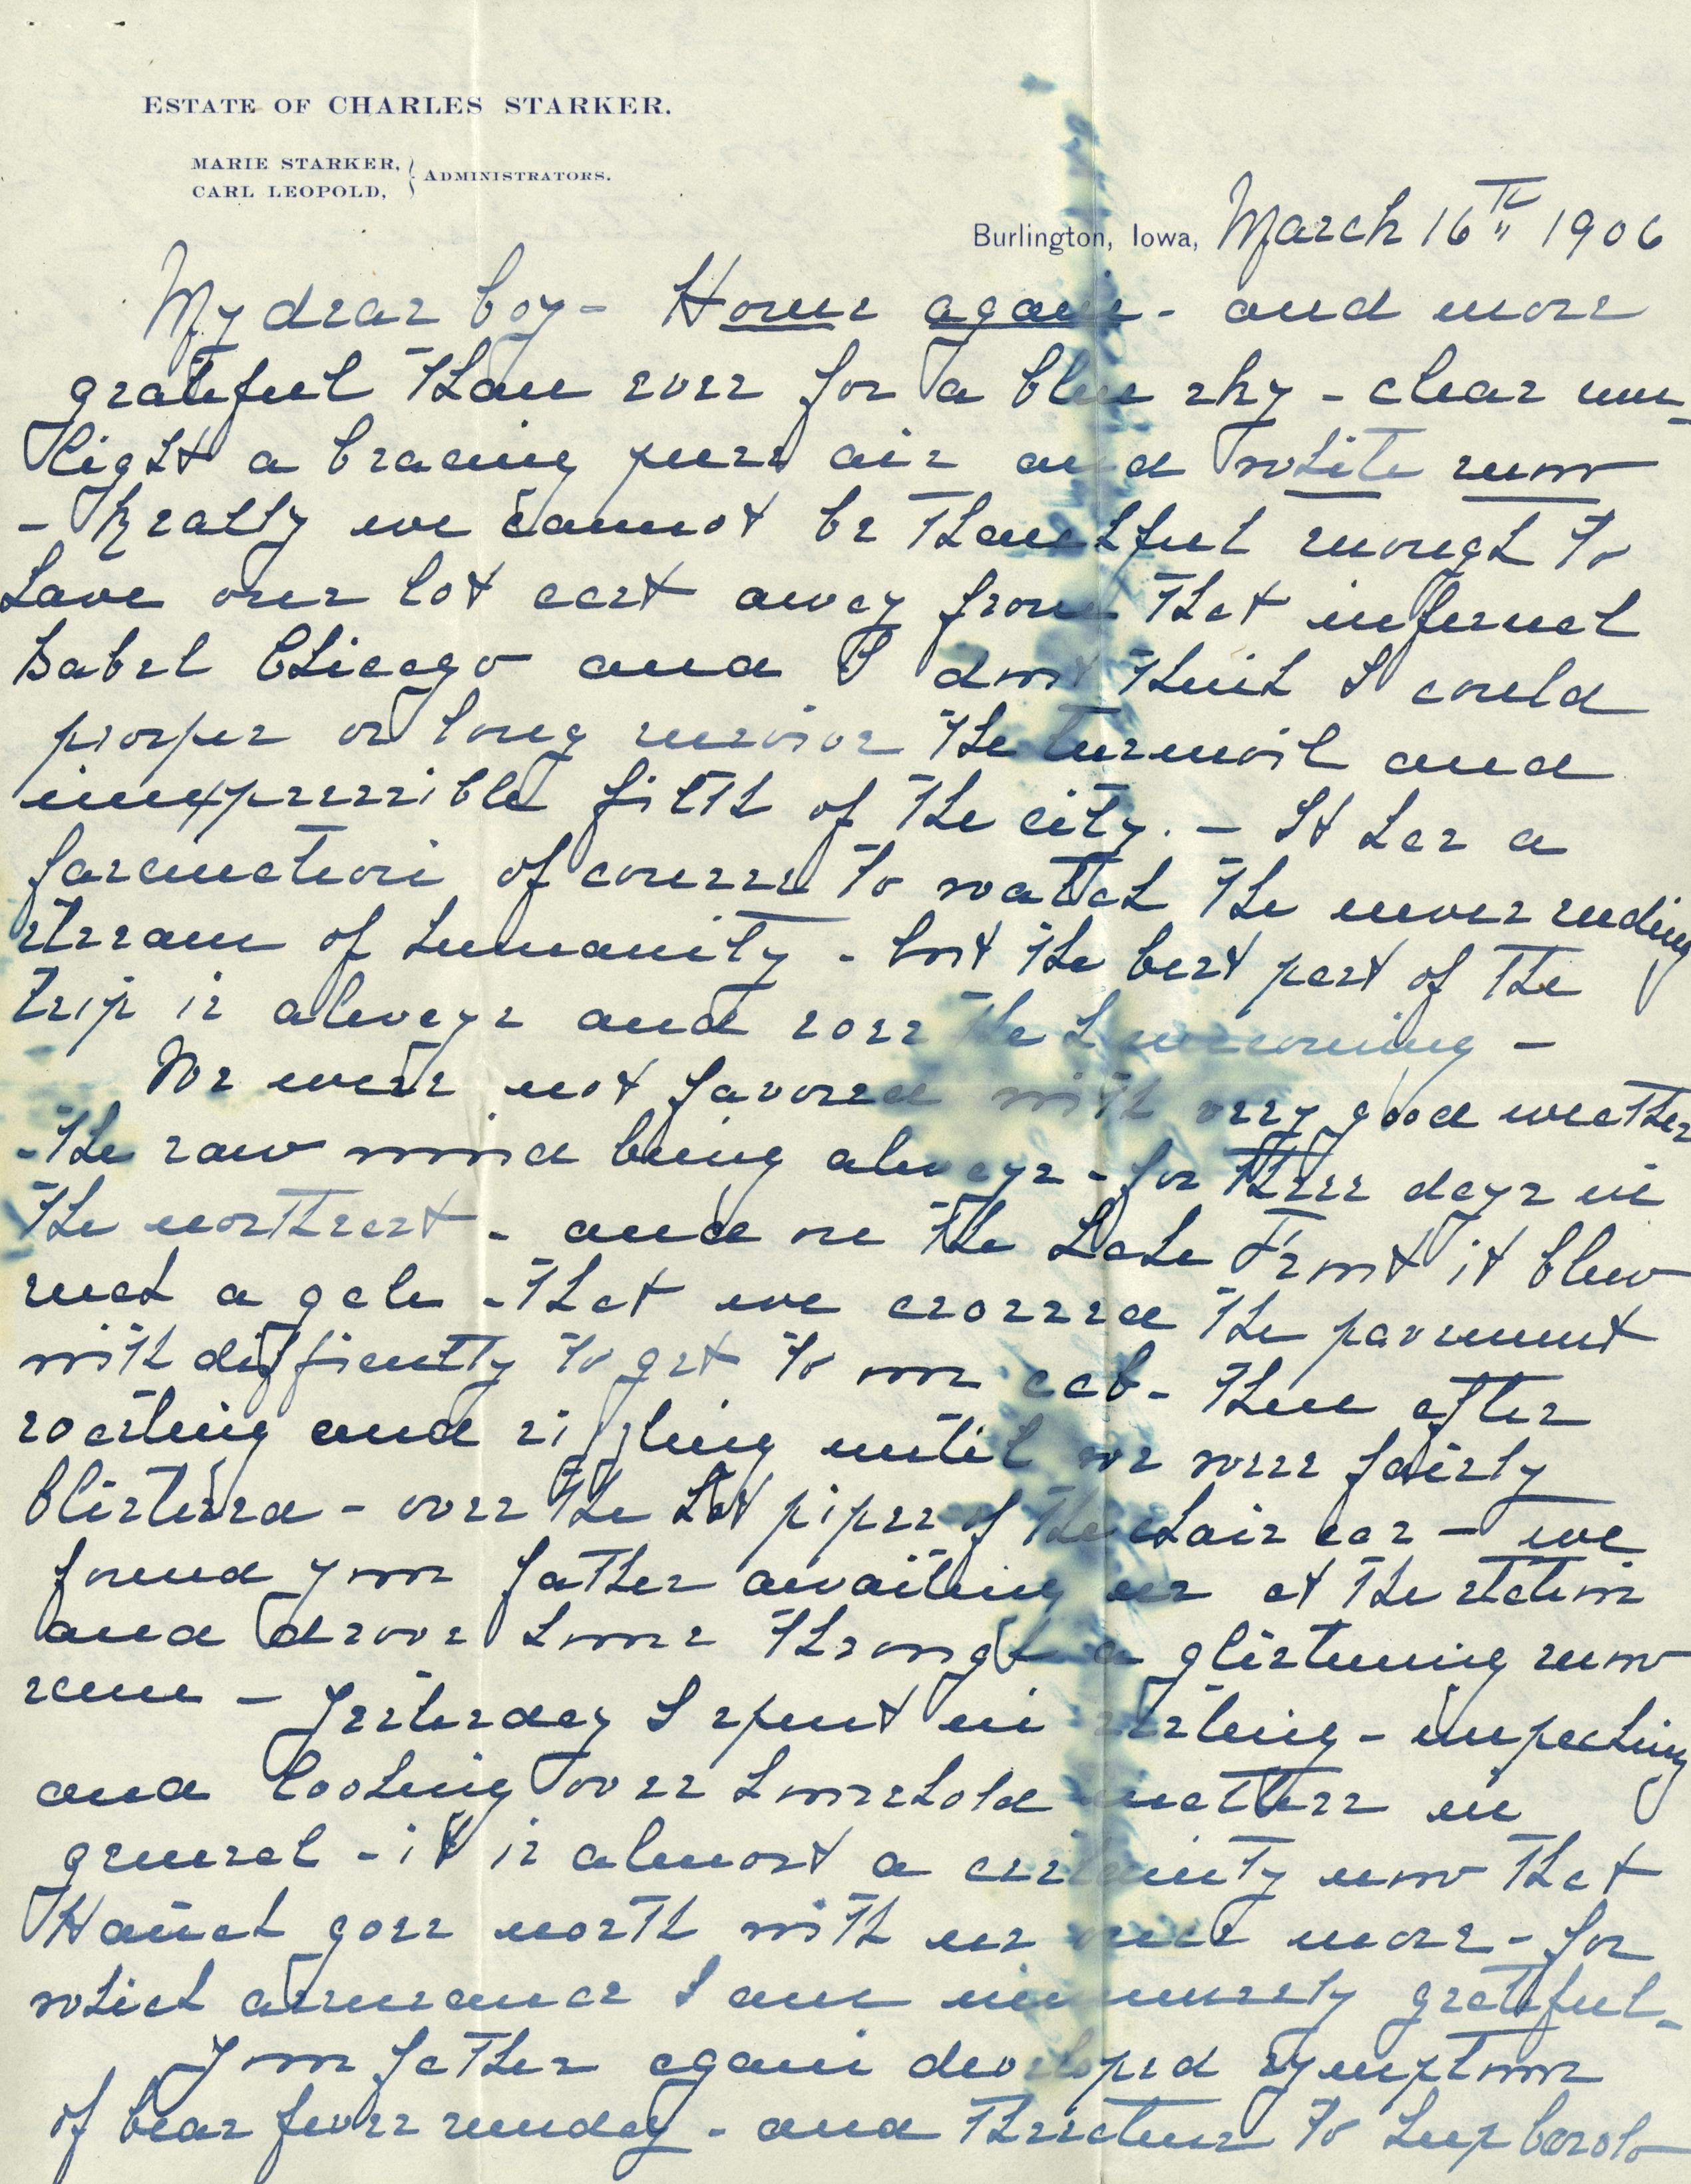 ESTATE OF CHARLES STARKER.
MARIE STARKER,
CARL LEOPOLD, } ADMINISTRATORS.
Burlington, Iowa, March 16th 1906
My dear boy - Home again - and more
grateful than ever for a blue sky - clear sun-
light a bracing pure air and white snow
- Really we cannot be thankful enough to
have our lot cast away from that infernal
Babel Chicago and I don't think I could
prosper or long survive the turmoil and
inexpressible filth of the city. - It has a
fascination of course to watch the never ending
stream of humanity - but the best part of the
trip is always and ever the homecoming -
We were not favored with very good weather
- the raw wind being always - for three days in
the northeast - and on the Lake Front it blew
such a gale - that we crossed the pavement
with difficulty to get to our cab - Then after
roasting and sizzling until we were fairly
blistered - over the hot pipes of the chair car - we
found your father awaiting us at the station
and drove home through a glistening snow
scene - Yesterday I spent in resting - inspecting
and looking over household matters in
general - it is almost a certainty now that
Hannah goes north with us once more - for
which assurance I am immensely grateful -
Your father again developed symptoms
of bear fever sunday - and threatens to